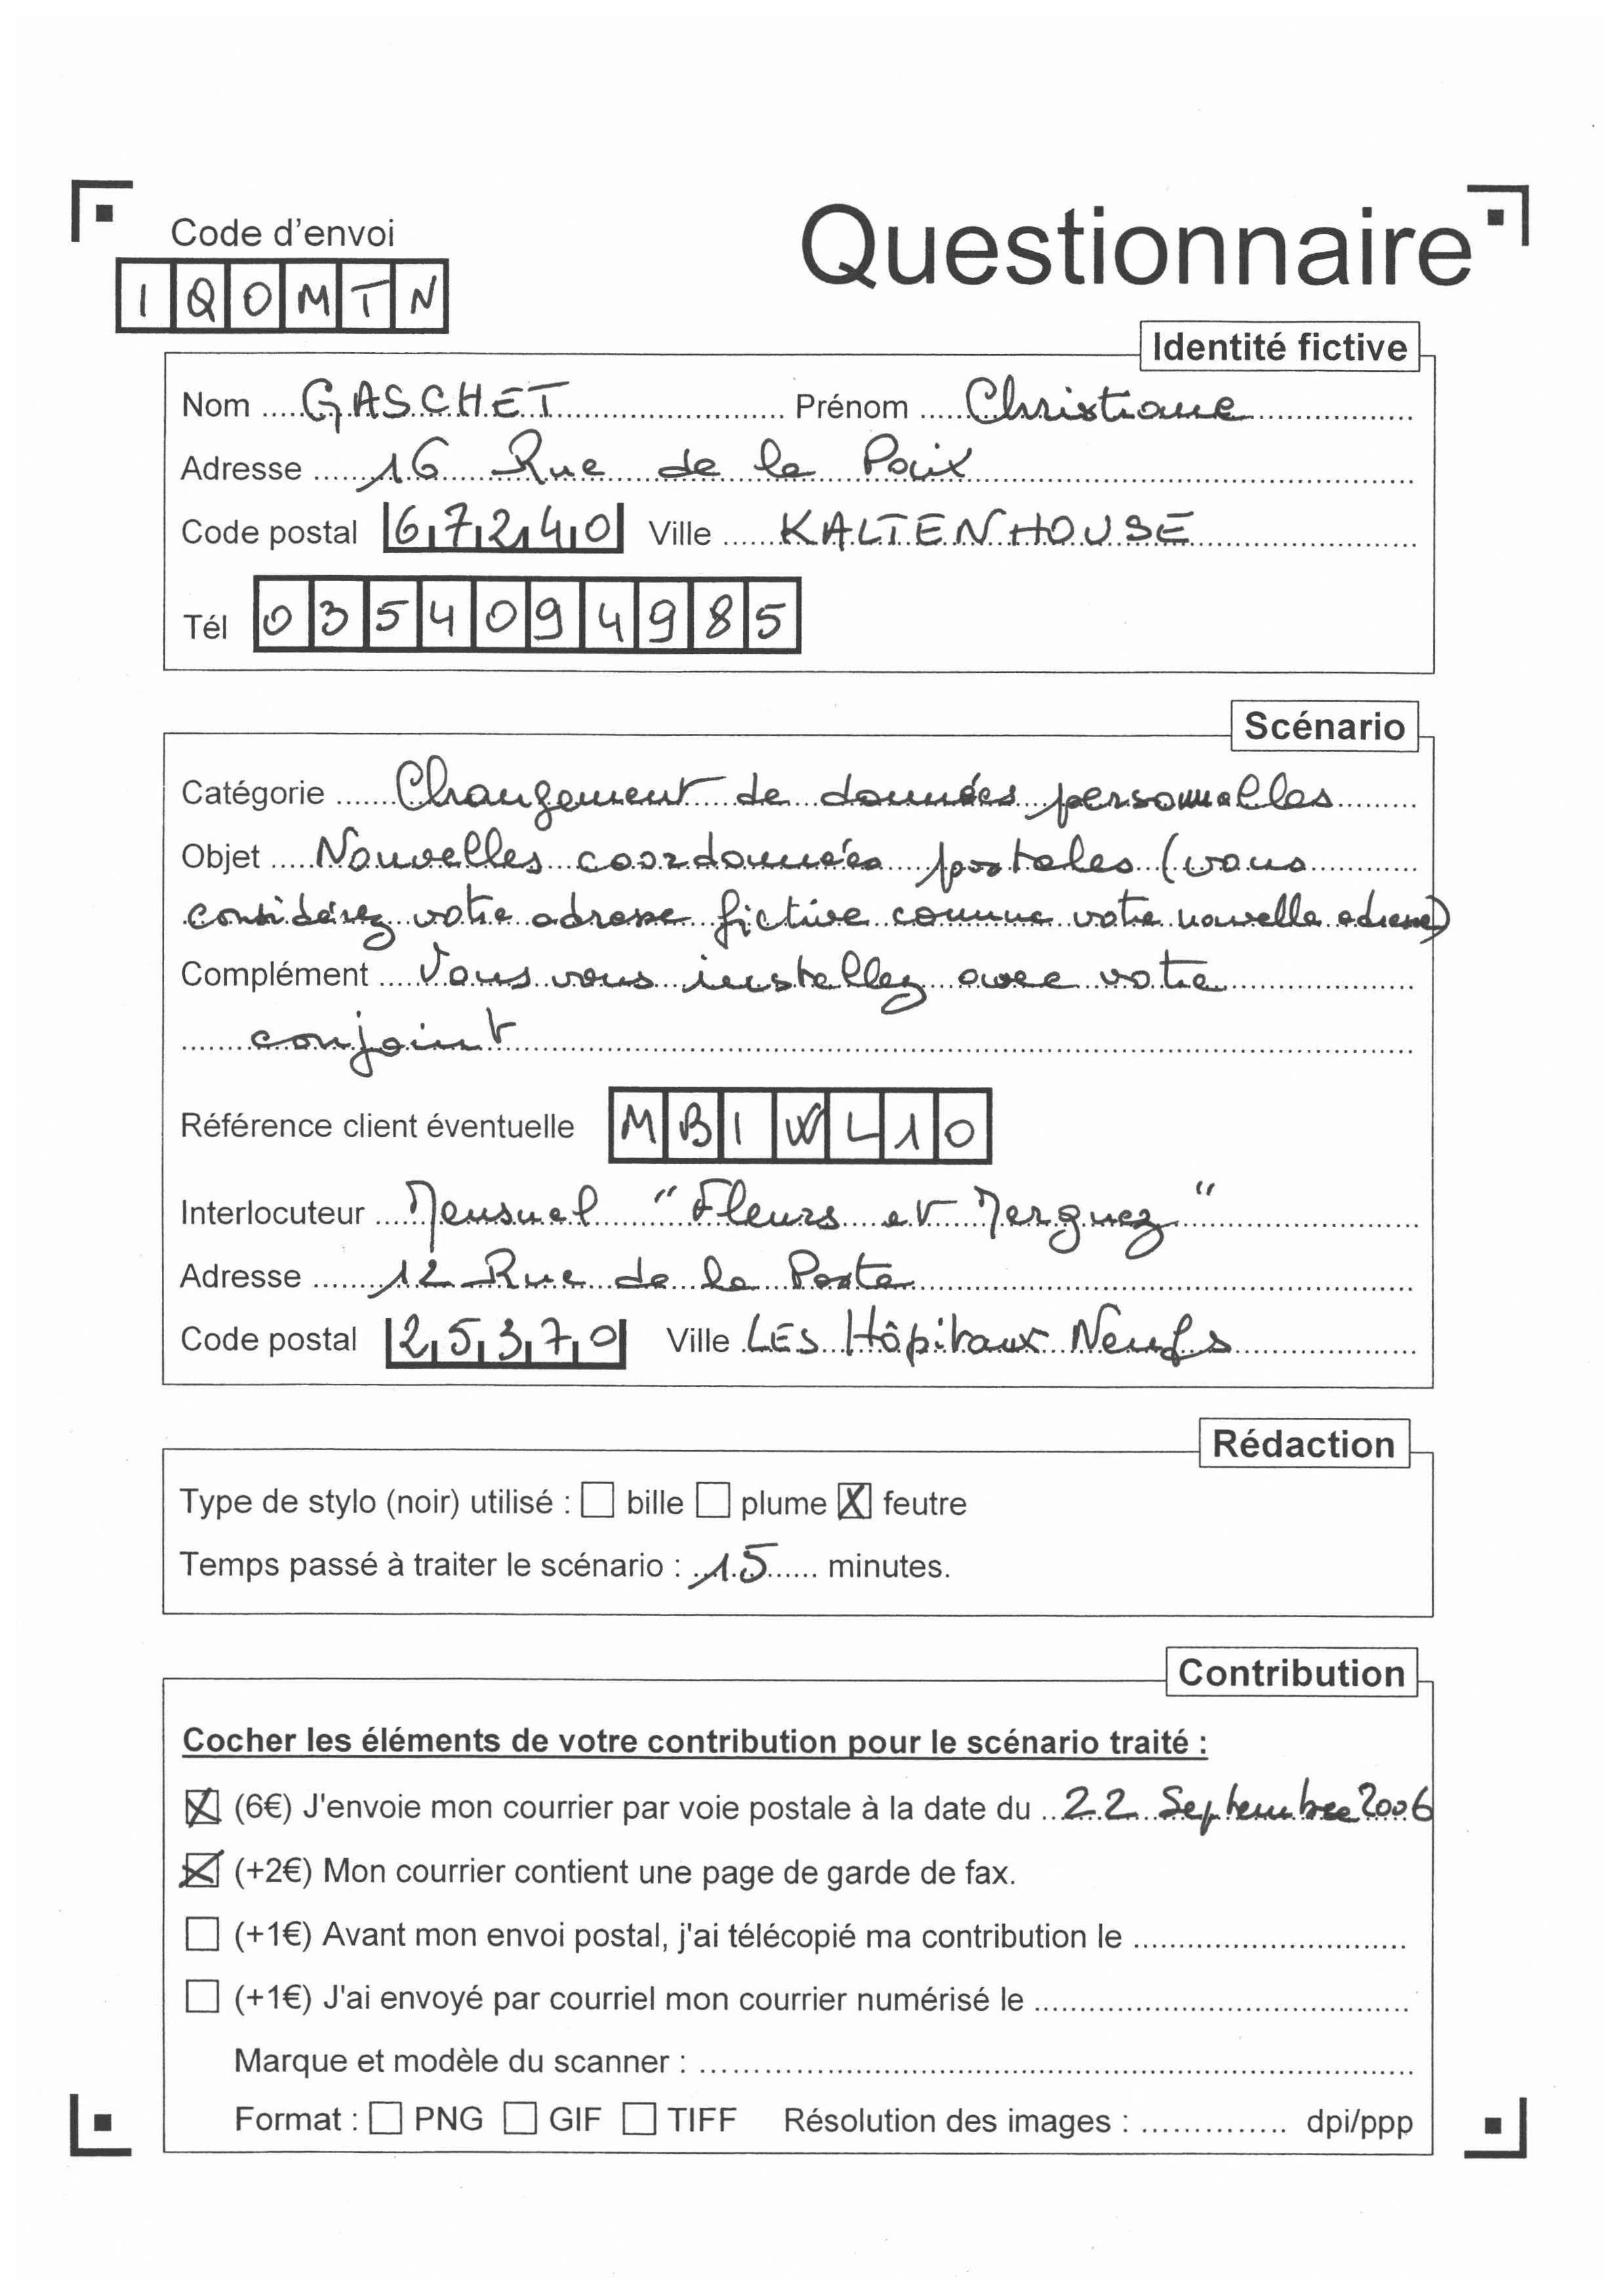 Code d'envoi
Questionnaire
IQOMTN
Identité fictive
Nom GASCHET Prénom Christiane
Adresse 16 Rue de la Paix
Code postal 67240 Ville KALTENHOUSE
Tél 0354094985
Scénario
Catégorie Changement de données personnelles
Objet Nouvelles coordonnées postales (vous
considérez votre adresse fictive comme votre nouvelle adresse)
Complément Vous vous installez avec votre
conjoint
Référence client éventuelle MBIWL10
Interlocuteur Mensuel "Fleurs et Merguez"
Adresse 12 Rue de la Poste
Code postal 25370 Ville LES Hôpitaux Neufs
Rédaction
Type de stylo (noir) utilisé : bille plume X feutre
Temps passé à traiter le scénario : 15 minutes.
Contribution
Cocher les éléments de votre contribution pour le scénario traité :
X (6€) J'envoie mon courrier par voie postale à la date du 22 Septembre 2006
X (+2€) Mon courrier contient une page de garde de fax.
(+1€) Avant mon envoi postal, j'ai télécopié ma contribution le
(+1€) J'ai envoyé par courriel mon courrier numérisé le
Marque et modèle du scanner :
Format : PNG GIF TIFF Résolution des images : dpi/ppp